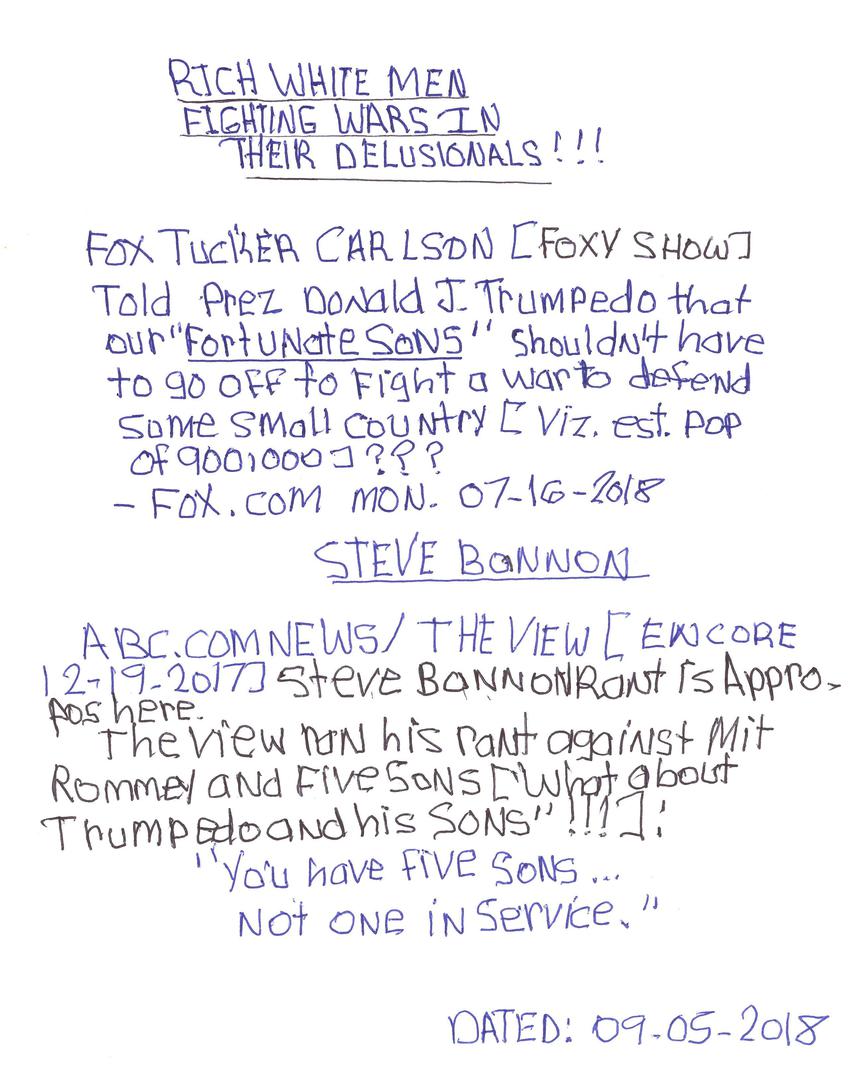 RICH WHITE MEN
FIGHTING WARS IN
THEIR DELUSIONALS!!!
FOX TUCKER CARLSON [FOXY SHOW]
Told Prez Donald J. Trumpedo that
our "Fortunate Sons" shouldn't have
to go off to Fight a war to defend
some small country [Viz. est. pop
of 900,000]???
- FOX.COM MON. 07-16-2018
STEVE BANNON
ABC.COM NEWS/THE VIEW [ENCORE
12-19-2017] Steve BANNON Rant is Appro-
pos here.
The view ran his rant against Mit
Rommey and Five Sons ["What about
Trumpedo and his Sons"!!!]:
"You have five sons...
Not one in service."
DATED: 09-05-2018